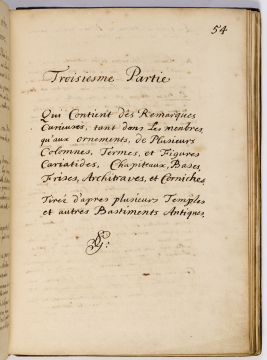 54
Troisiesme Partie
Qui Contient des Remarques
Curieuses, tant dans Les menbres,
qu'aux ornements, de Plusieurs
Colomnes, Termes, et Figures
Cariatides, Chapiteaux, Bases,
Frises, Architraves, et Corniches,
Tirez d'apres plusieurs Temples
et autres Bastiments Antiques,